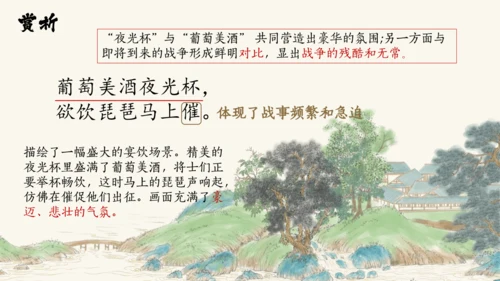 赏析
“夜光杯”与“葡萄美酒” 共同营造出豪华的氛围;另一方面与
即将到来的战争形成鲜明对比，显出战争的残酷和无常。
葡萄美酒夜光杯，
欲饮琵琶马上催。体现了战事频繁和急迫
描绘了一幅盛大的宴饮场景。精美的
夜光杯里盛满了葡萄美酒，将士们正
要举杯畅饮，这时马上的琵琶声响起，
仿佛在催促他们出征。画面充满了豪
迈、悲壮的气氛。